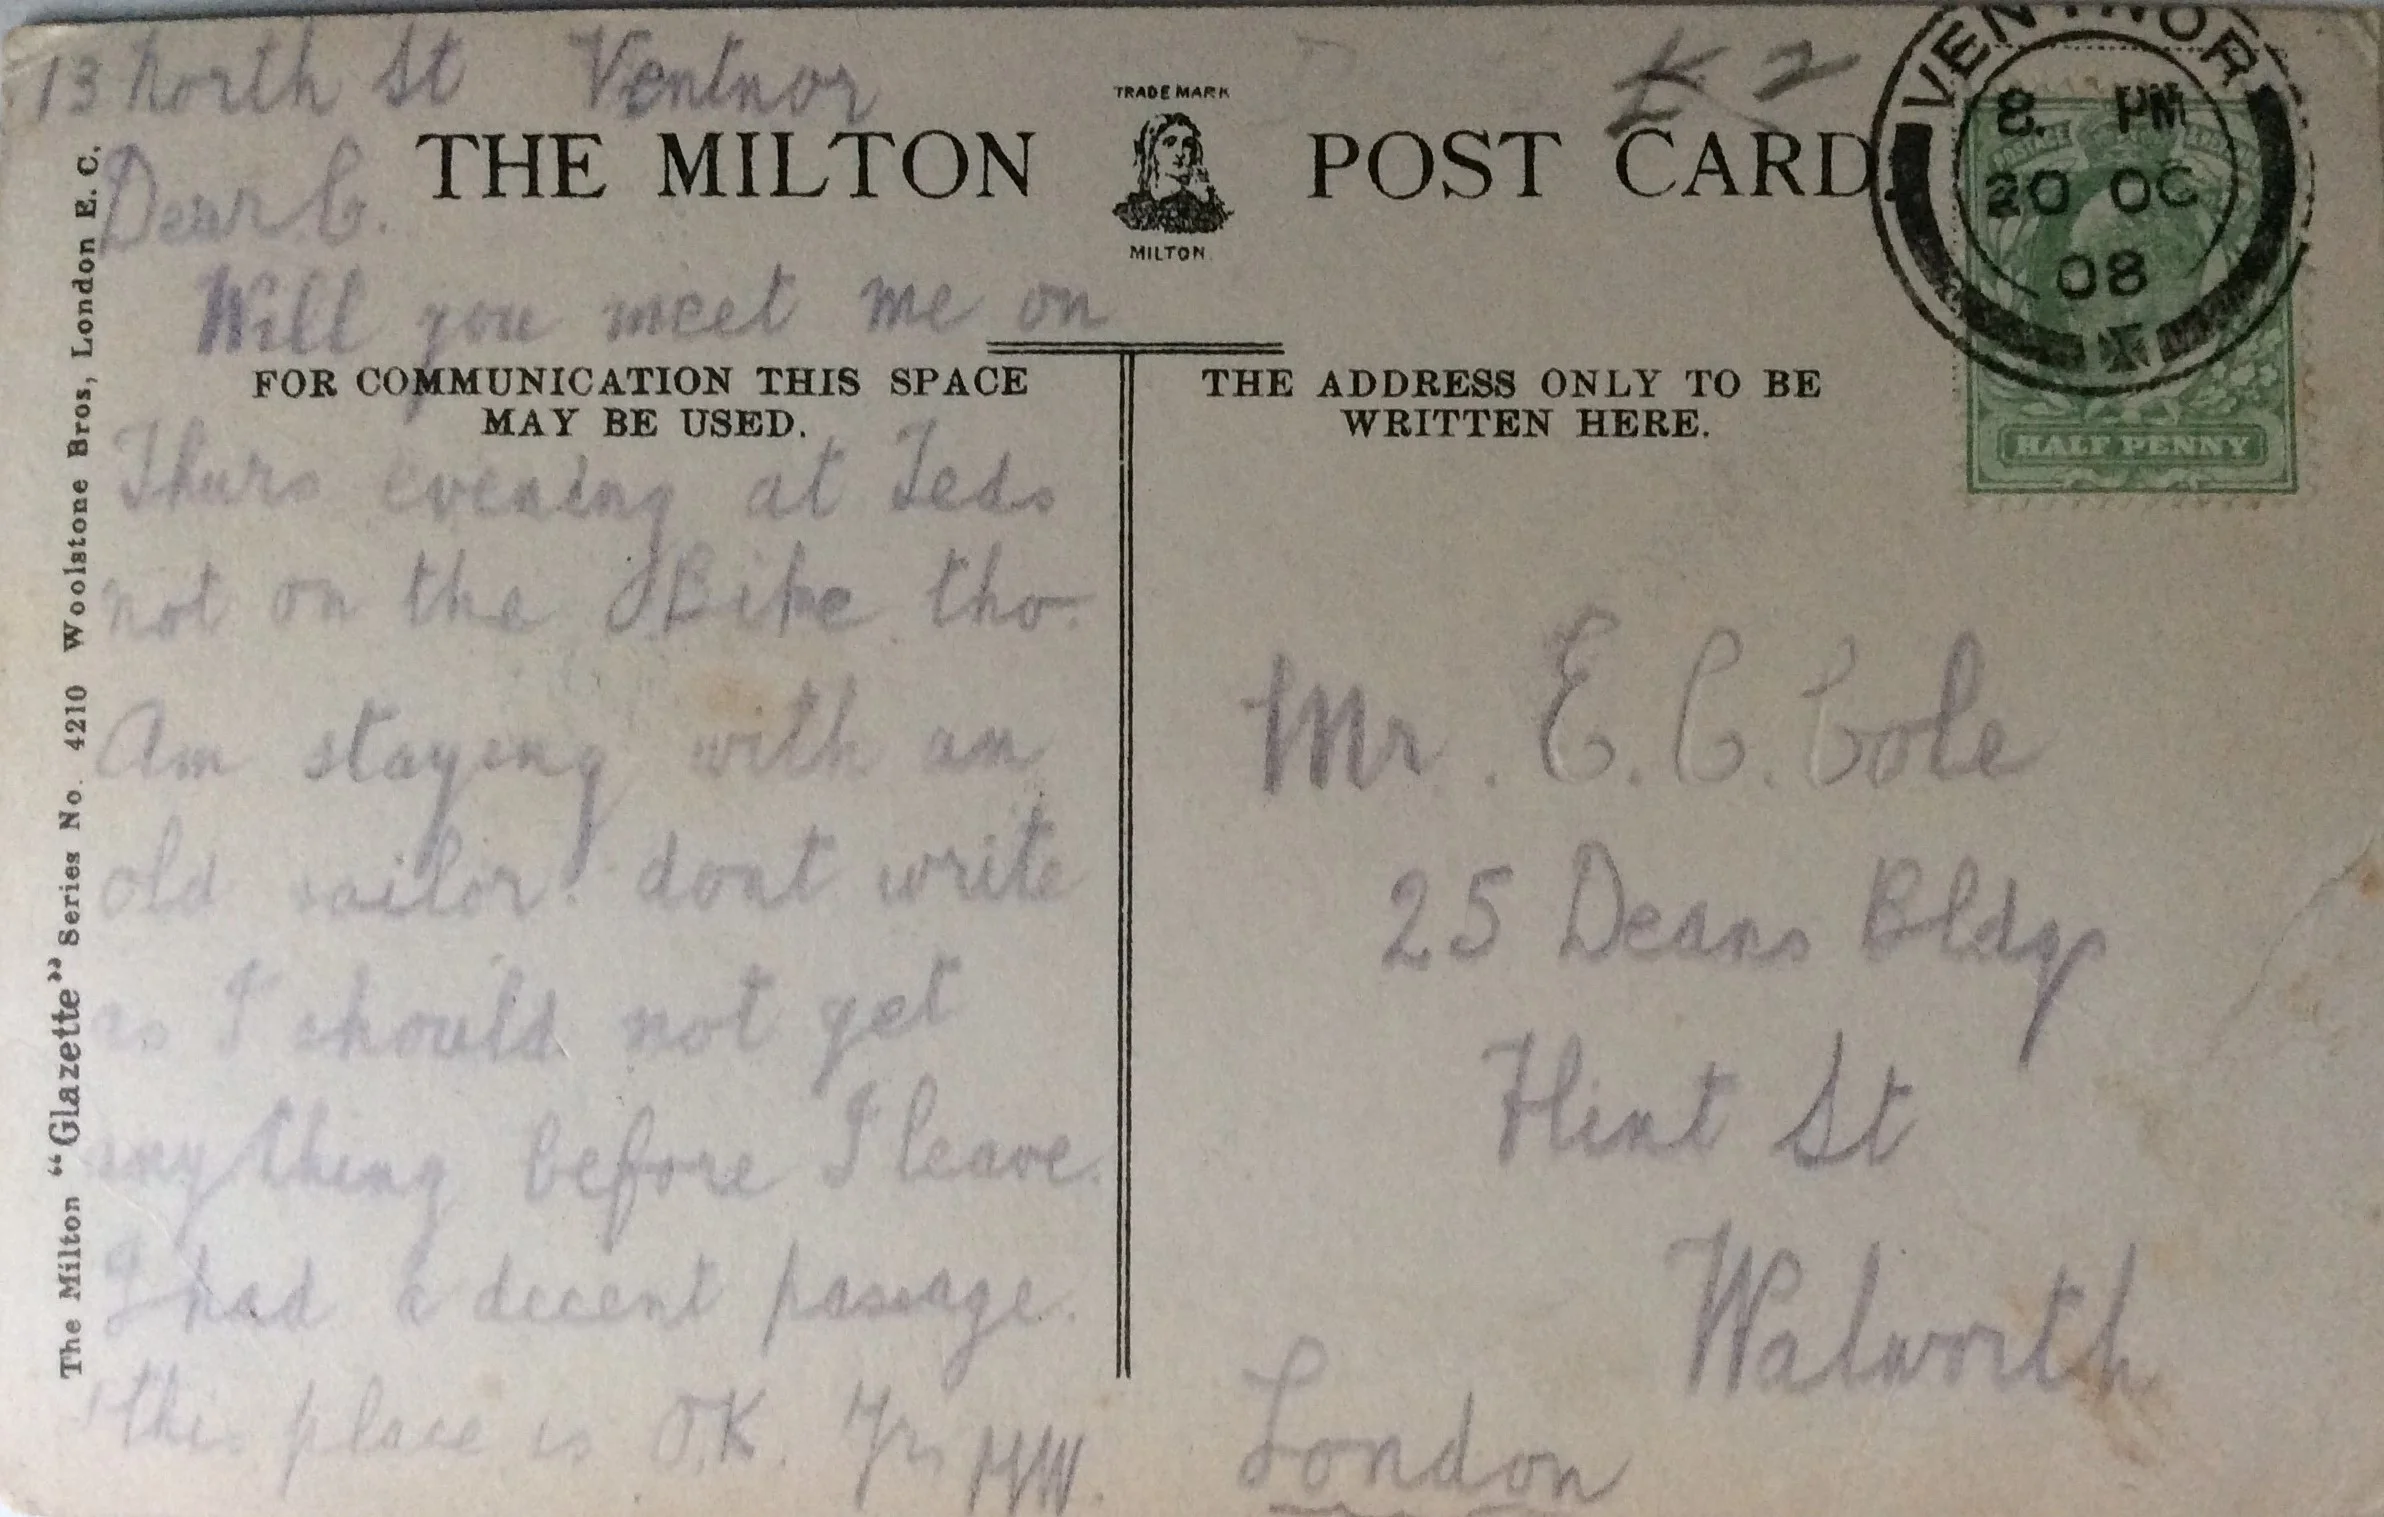 13 North St Ventnor
Dear C.
Will you meet me on
Thurs evening at Teds
not on the Bike tho.
Am staying with an
old sailor. dont write
as I should not get
anything before I leave.
I had a decent passage.
this place is OK. Yrs HW.
THE MILTON POST CARD.
TRADE MARK
MILTON
FOR COMMUNICATION THIS SPACE
MAY BE USED.
THE ADDRESS ONLY TO BE
WRITTEN HERE.
The Milton "Glazette" Series No. 4210 Woolstone Bros, London E. C.
K 2
VENTNOR
8. PM
20 OC
08
HALF PENNY
Mr. E. C. Cole
25 Deans Bldgs
Flint St
Walworth
London